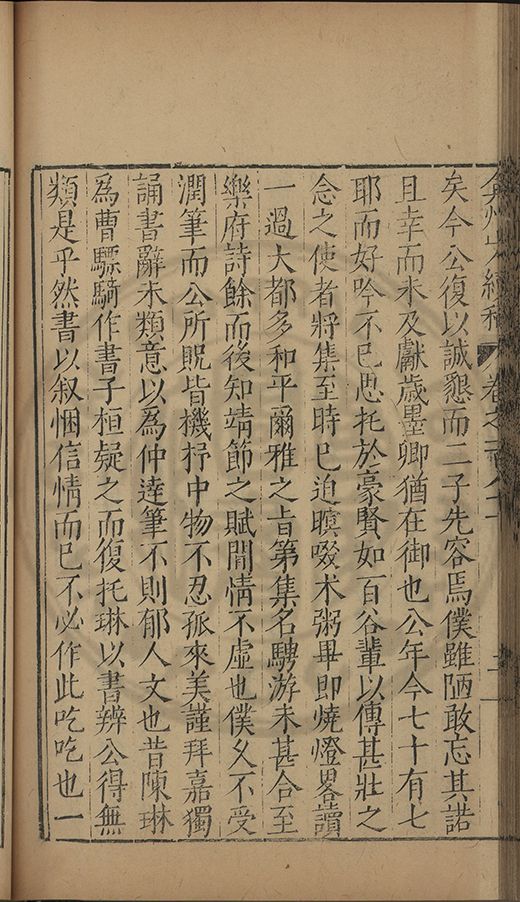 矣今公復以誠懇而二子先容焉僕雖陋敢忘其諾
且幸而未及獻歲墨卿猶在御也公年今七十有七
耶而好吟不已思托於豪賢如百谷輩以傳甚壯之
念之使者將集至時已迫瞋啜术粥畢即燒燈畧讀
一過大都多和平爾雅之旨第集名騁游未甚合至
樂府詩餘而後知靖節之賦閒情不虛也僕久不受
潤筆而公所貺皆機杼中物不忍孤來美謹拜嘉獨
誦書辭未類意以為仲逹筆不則郁人文也昔陳琳
為曹驃騎作書子桓疑之而復托琳以書辨公得無
類是乎然書以叙悃信情而已不必作此吃吃也一